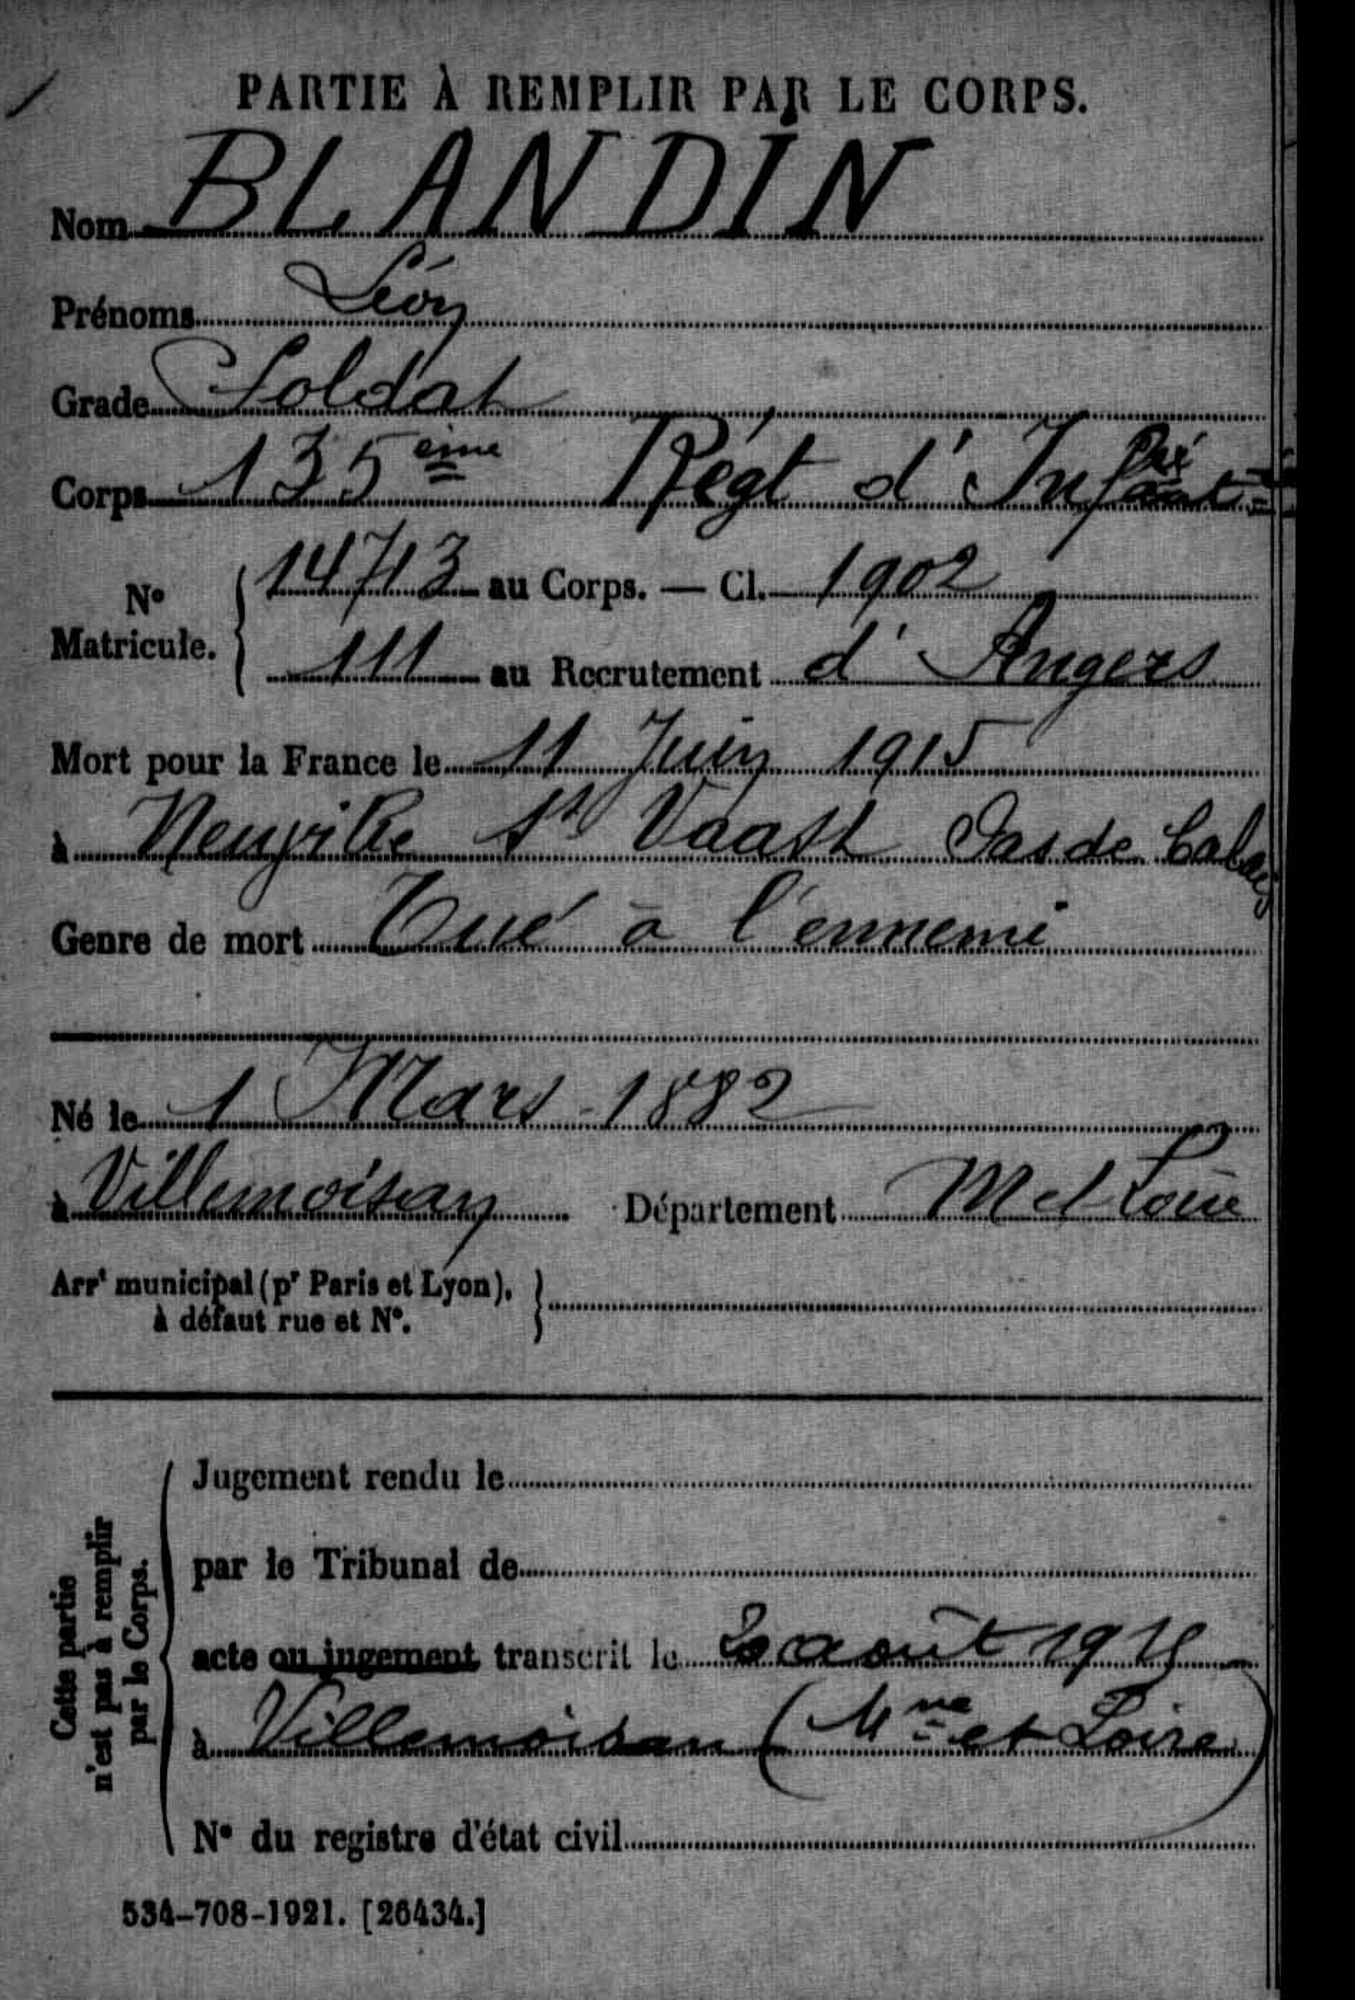 PARTIE À REMPLIR PAR LE CORPS.
Nom BLANDIN
Prénoms Léon
Grade Soldat
Corps 135ème Régt d'Infant
N° Matricule. 14713 au Corps. — Cl. 1902
111 au Recrutement d'Angers
Mort pour la France le 11 Juin 1915
à Neuville St Vaast Pas de Calais
Genre de mort Tué à l'ennemi
Né le 1 Mars 1882
à Villemoisan Département M et Loire
Arrt municipal (pr Paris et Lyon),
à défaut rue et N°.
Cette partie
n'est pas à remplir
par le Corps.
Jugement rendu le
par le Tribunal de
acte ou jugement transcrit le août 1915
à Villemoisan (Mne et Loire)
N° du registre d'état civil
534-708-1921. [26434.]